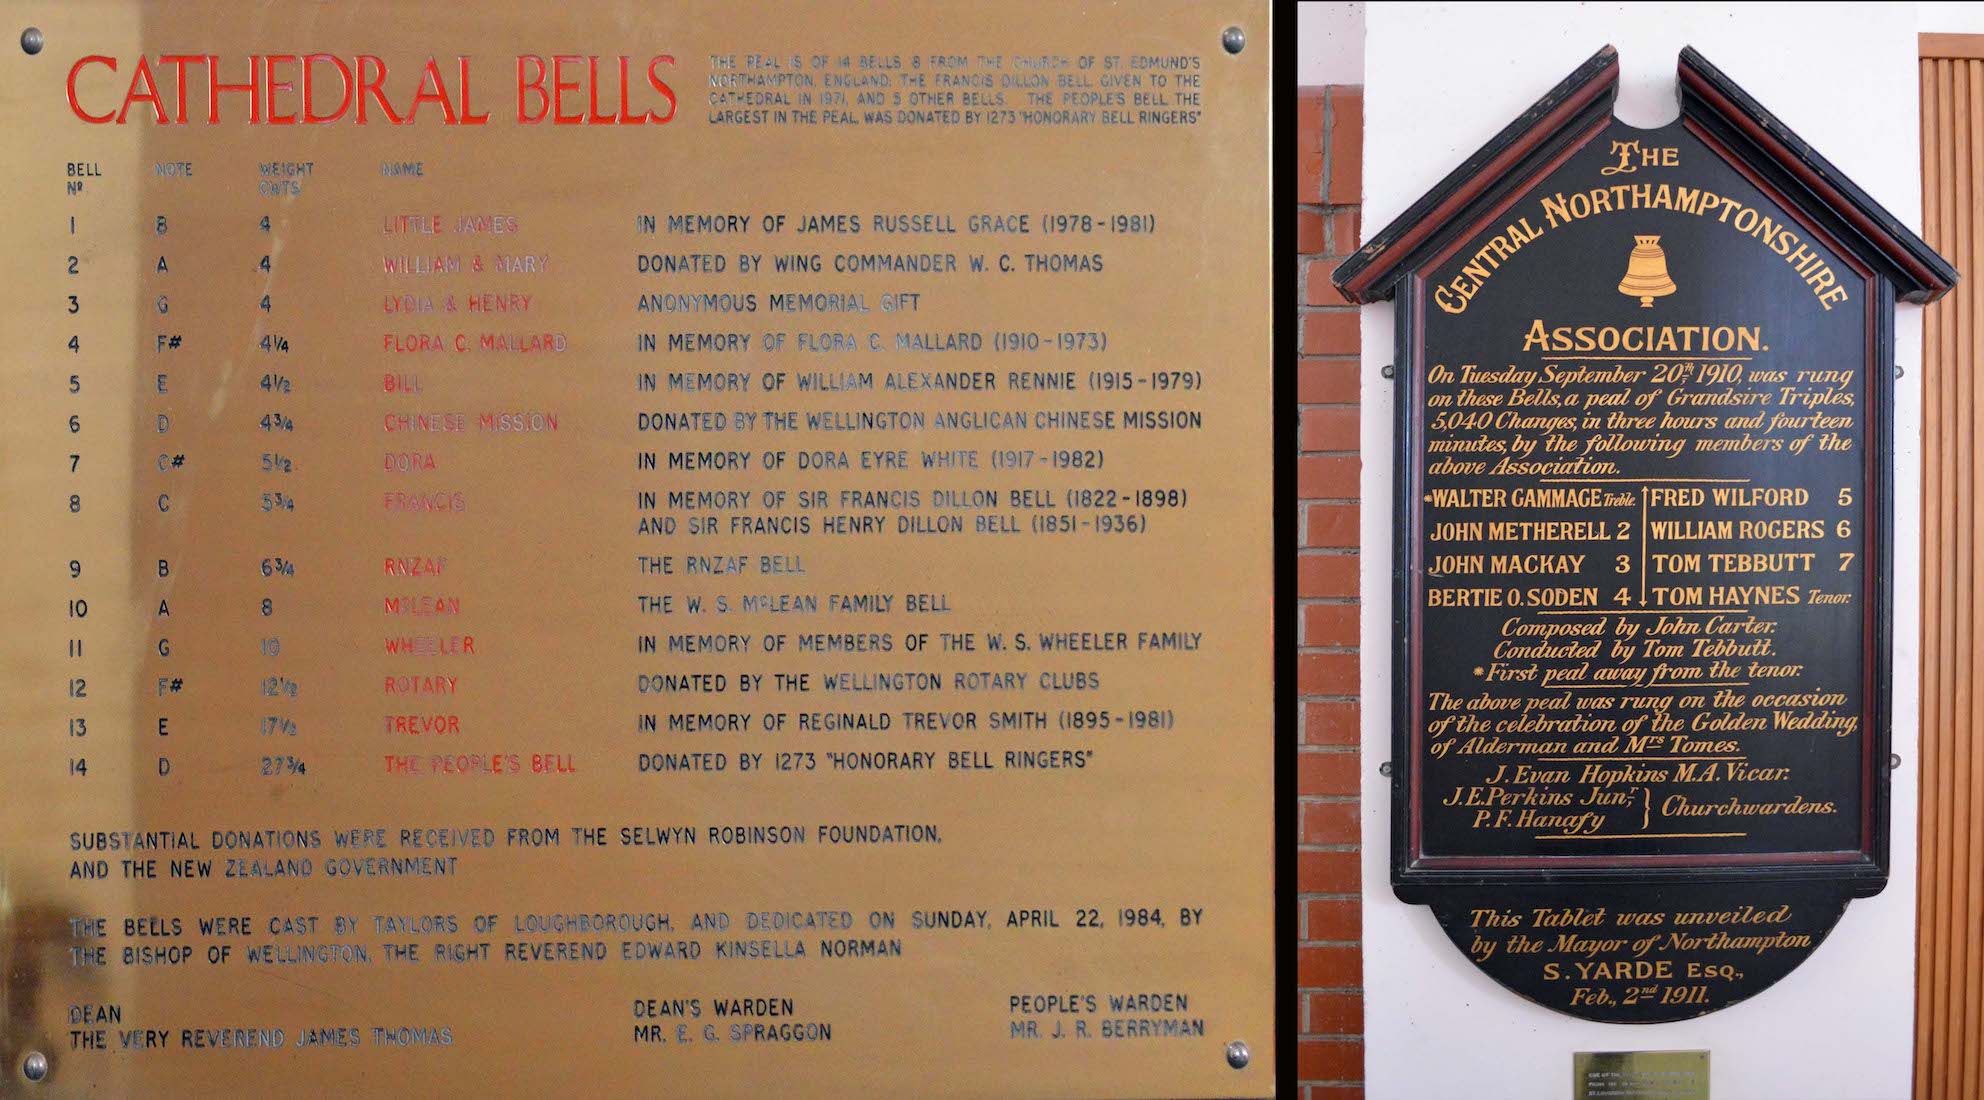 CATHEDRAL BELLS
THE PEAL IS OF 14 BELLS 8 FROM THE CHURCH OF ST. EDMUND'S
NORTHAMPTON, ENGLAND; THE FRANCIS DILLON BELL GIVEN TO THE
CATHEDRAL IN 1971, AND 5 OTHER BELLS. THE PEOPLE'S BELL THE
LARGEST IN THE PEAL, WAS DONATED BY 1273 "HONORARY BELL RINGERS"
BELL Nº NOTE WEIGHT CWTS NAME
1 B 4 LITTLE JAMES IN MEMORY OF JAMES RUSSELL GRACE (1978-1981)
2 A 4 WILLIAM & MARY DONATED BY WING COMMANDER W. C. THOMAS
3 G 4 LYDIA & HENRY ANONYMOUS MEMORIAL GIFT
4 F# 4¼ FLORA C. MALLARD IN MEMORY OF FLORA C. MALLARD (1910-1973)
5 E 4½ BILL IN MEMORY OF WILLIAM ALEXANDER RENNIE (1915-1979)
6 D 4¾ CHINESE MISSION DONATED BY THE WELLINGTON ANGLICAN CHINESE MISSION
7 C# 5½ DORA IN MEMORY OF DORA EYRE WHITE (1917-1982)
8 C 5¾ FRANCIS IN MEMORY OF SIR FRANCIS DILLON BELL (1822-1898)
AND SIR FRANCIS HENRY DILLON BELL (1851-1936)
9 B 6¾ RNZAF THE RNZAF BELL
10 A 8 McLEAN THE W. S. McLEAN FAMILY BELL
11 G 10 WHEELER IN MEMORY OF MEMBERS OF THE W. S. WHEELER FAMILY
12 F# 12½ ROTARY DONATED BY THE WELLINGTON ROTARY CLUBS
13 E 17½ TREVOR IN MEMORY OF REGINALD TREVOR SMITH (1895-1981)
14 D 27¾ THE PEOPLE'S BELL DONATED BY 1273 "HONORARY BELL RINGERS"
SUBSTANTIAL DONATIONS WERE RECEIVED FROM THE SELWYN ROBINSON FOUNDATION,
AND THE NEW ZEALAND GOVERNMENT
THE BELLS WERE CAST BY TAYLORS OF LOUGHBOROUGH, AND DEDICATED ON SUNDAY, APRIL 22, 1984, BY
THE BISHOP OF WELLINGTON, THE RIGHT REVEREND EDWARD KINSELLA NORMAN
DEAN
THE VERY REVEREND JAMES THOMAS
DEAN'S WARDEN
MR. E. G. SPRAGGON
PEOPLE'S WARDEN
MR. J. R. BERRYMAN
THE
CENTRAL NORTHAMPTONSHIRE
ASSOCIATION.
On Tuesday, September 20th 1910, was rung
on these Bells, a peal of Grandsire Triples,
5,040 Changes, in three hours and fourteen
minutes, by the following members of the
above Association.
*WALTER GAMMAGE Treble. FRED WILFORD 5
JOHN METHERELL 2 WILLIAM ROGERS 6
JOHN MACKAY 3 TOM TEBBUTT 7
BERTIE O. SODEN 4 TOM HAYNES Tenor.
Composed by John Carter.
Conducted by Tom Tebbutt.
*First peal away from the tenor.
The above peal was rung on the occasion
of the celebration of the Golden Wedding,
of Alderman and Mrs Tomes.
J. Evan Hopkins M.A. Vicar.
J.E. Perkins Junr,
P.F. Hanafy } Churchwardens.
This Tablet was unveiled
by the Mayor of Northampton
S. YARDE ESQ.,
Feb., 2nd 1911.